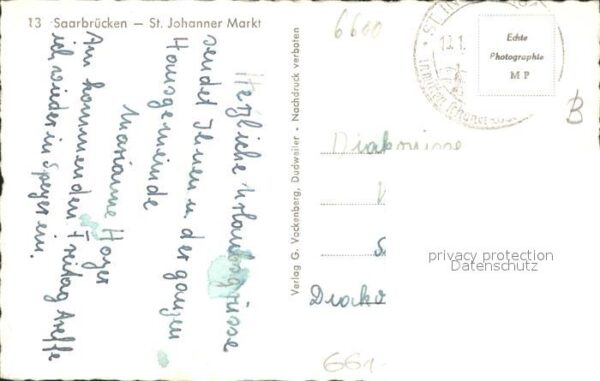 13 Saarbrücken – St. Johanner Markt
6600
ST. IN
Echte
Photographie
M P
B
Herzliche Urlaubsgrüsse
sendet Ihnen u der ganzen
Hausgemeinde
Marianne Hoyer
Am kommenden Freitag treffe
ich wieder in Speyer ein.
Verlag G. Vockenberg, Dudweiler · Nachdruck verboten
Diakonisse
privacy protection
Datenschutz
Diako
661